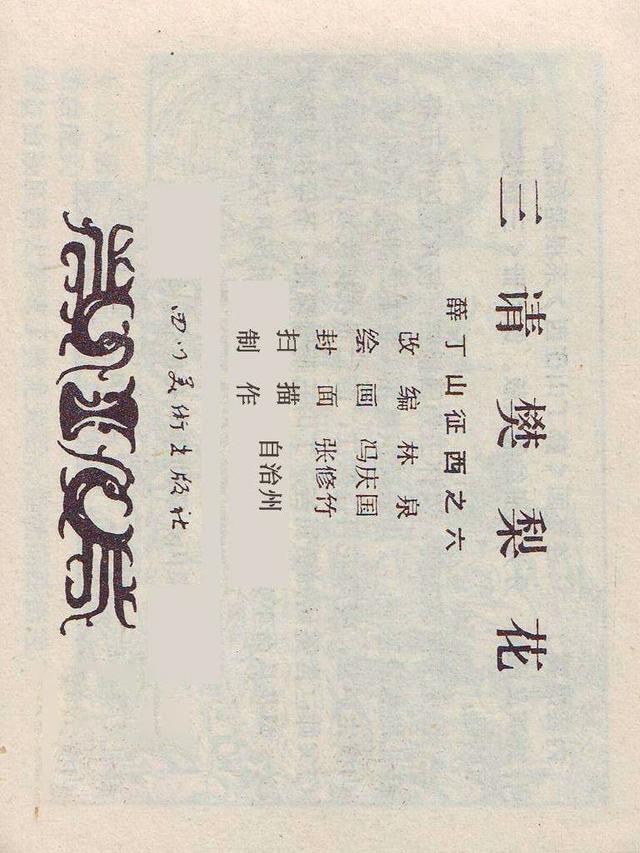 三请樊梨花
薛丁山征西之六
改编 林泉
绘画 冯庆国
封面 张修竹
扫描
制作 自治州
四川美術出版社